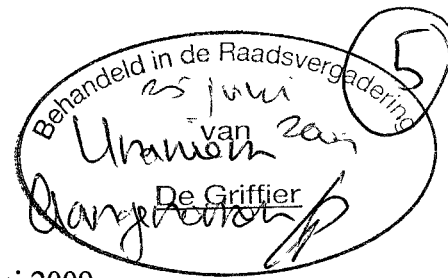 Behandeld in de Raadsvergadering
5
25 juni
van 2009
Unaniem
De Griffier
Aangenomen
i 2009